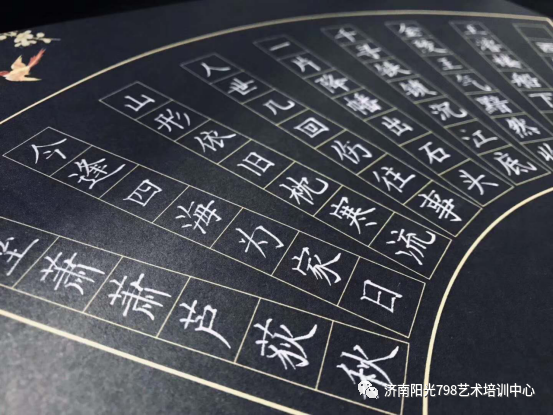 下
金陵王气黯然
千寻铁锁沉江底
一片降幡出石头
人世几回伤往事
山形依旧枕寒流
今逢四海为家日
垒萧萧芦荻秋
济南阳光798艺术培训中心